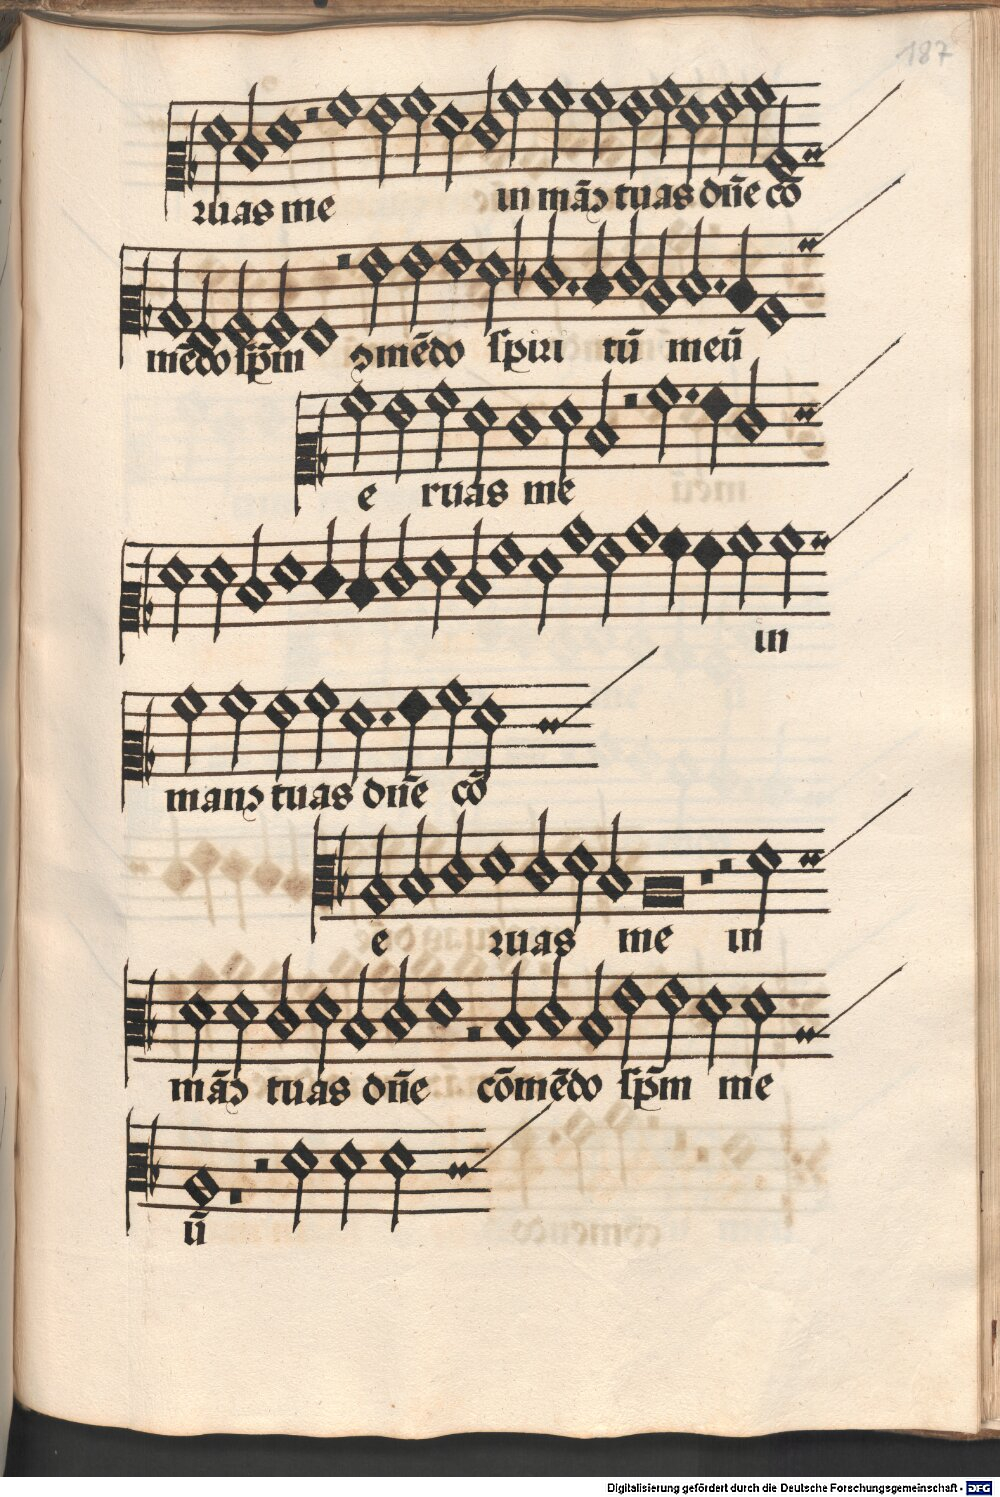 187
ruas me in mãꝫ tuas dñe cõ
mẽdo spm̃ ꝯmẽdo spiri tũ meũ
e ruas me
in
manꝫ tuas dñe cõ
e ruas me in
mãꝫ tuas dñe cõmẽdo spm̃ me
ũ
Digitalisierung gefördert durch die Deutsche Forschungsgemeinschaft - DFG